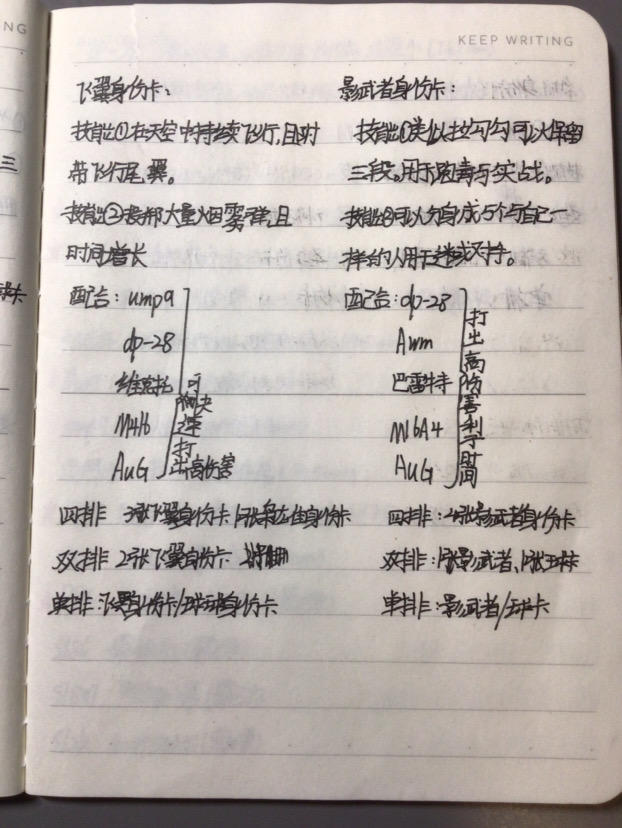 KEEP WRITING
飞翼身份卡:
技能①在天空中持续飞行,且附
带飞行尾翼。
技能②
大量烟雾弹且
时间增长
配合: ump9
dp-28
维克托
M416
AUG
可
快
速
打
出高伤害
四排 3张飞翼身份卡1张
身份卡
双排 2张飞翼身份卡
单排:飞翼身份卡/
身份卡
影武者身份卡:
技能①类似控勾勾可以保留
三段。用于
与实战。
技能②可以分身成5个与自己一
样的人用于
配合: dp-28
Awm
巴雷特
M16A4
AUG
打
出
高
伤
害
利
于
时
间
四排:4张影武者身份卡
双排:1张影武者,1张
卡
单排:影武者/
卡